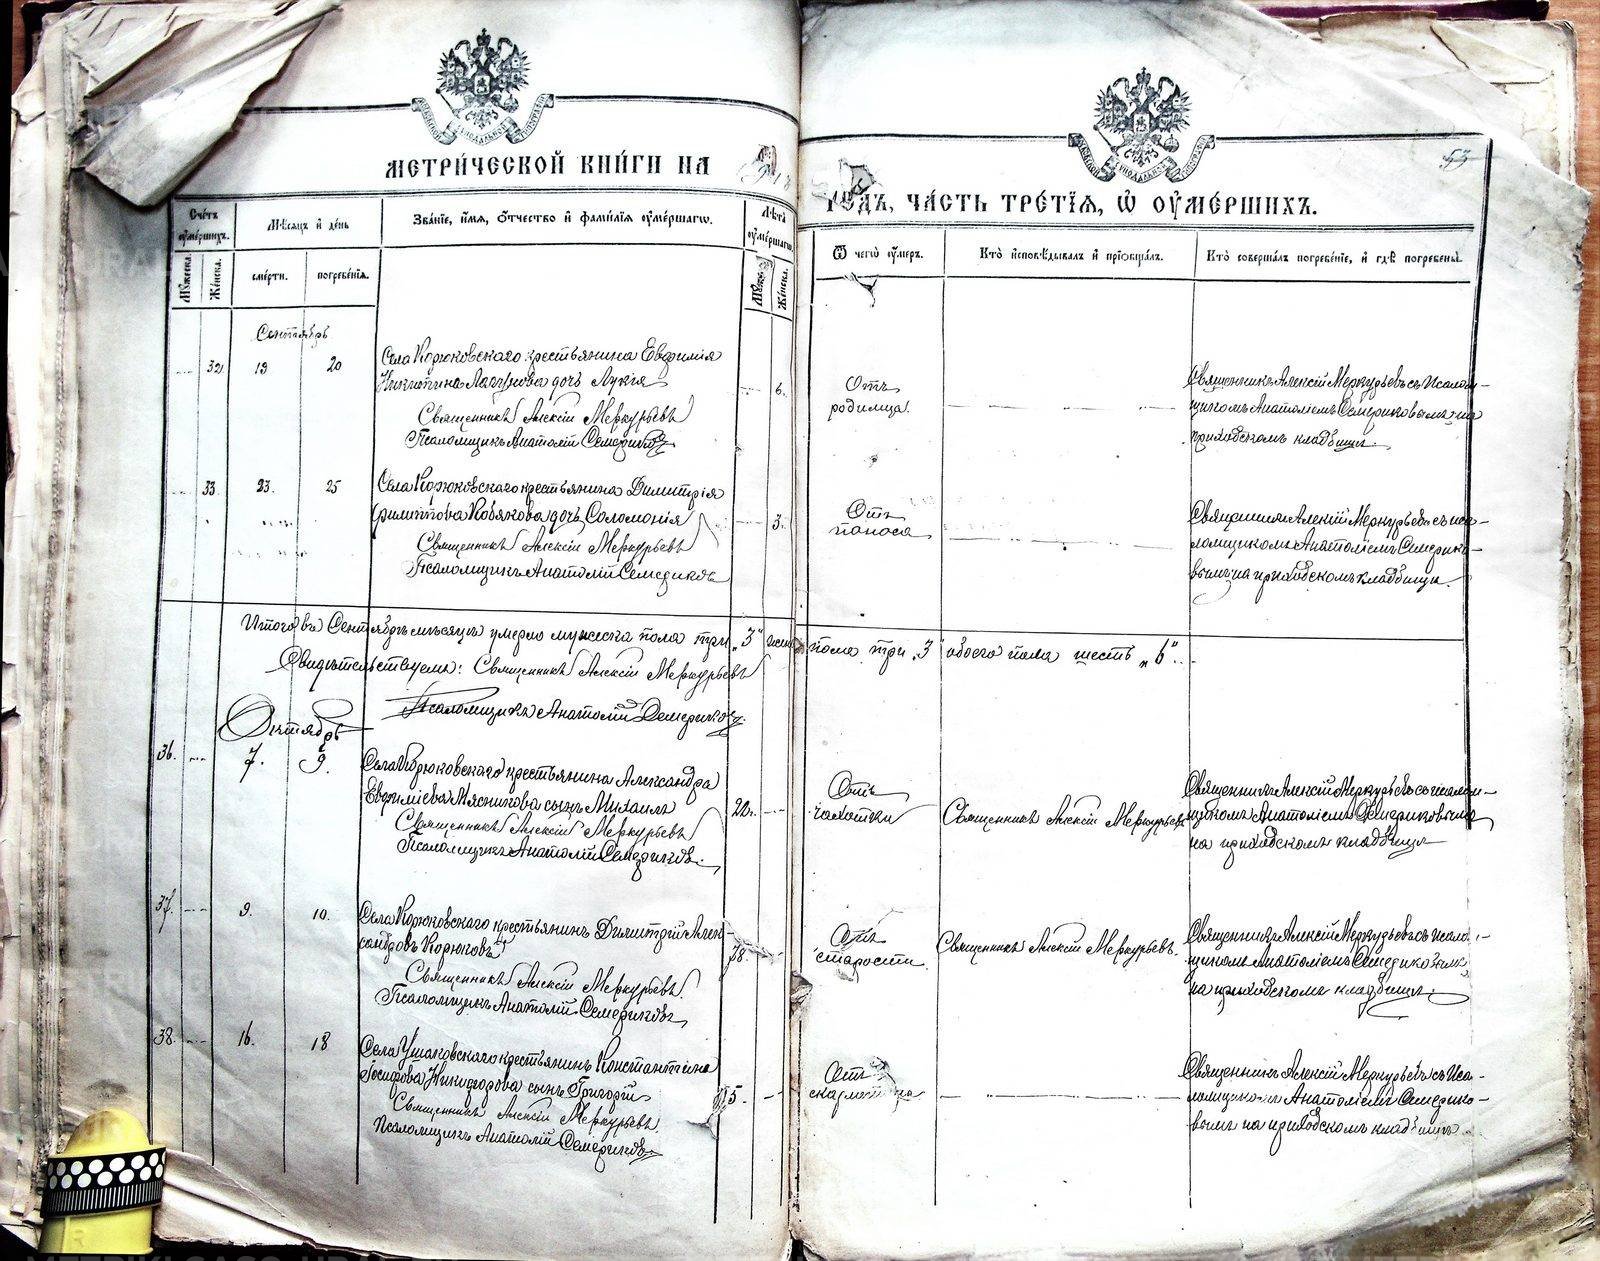 МЕТРИ́ЧЕСКОЙ КНИ́ГИ НА
ГОДЪ, ЧА́СТЬ ТРЕ́ТІѦ, Ѡ ОУМЕ́РШИХЪ.
53
Счётъ оумершихъ.
Мѣсяцъ и день
Зва́ніе, и́мя, о́тчество и фами́лія оуме́ршагѡ.
Лѣта оумершагѡ
Ѿ чегѡ оумеръ.
Кто исповѣдывалъ и пріобщалъ.
Кто совершалъ погребеніе, и гдѣ погребены.
Мужеска.
Женска.
смерти.
погребенія.
Муже
Женска.
Сентябрь
32 19 20
Села Корюковскаго крестьянина Евфимія
Никитина дочь Лукія
Священникъ Алексій Меркурьевъ
Псаломщикъ Анатолій Семериковъ
6.
Отъ
родимца.
Священникъ Алексій Меркурьевъ съ псалом-
щикомъ Анатоліемъ Семериковымъ на
приходскомъ кладбищѣ.
33. 23. 25
Села Корюковскаго крестьянина Димитрія
Филиппова Кобякова дочь Соломонія
Священникъ Алексій Меркурьевъ
Псаломщикъ Анатолій Семериковъ
3.
Отъ
поноса
Священникъ Алексій Меркурьевъ съ пса-
ломщикомъ Анатоліемъ Семерико-
вымъ на приходскомъ кладбищѣ.
Итого въ Сентябрѣ мѣсяцѣ умерло мужеска пола три „3" женс пола три „3" обоего пола шесть „6"
Свидѣтельствуемъ: Священникъ Алексій Меркурьевъ
Псаломщикъ Анатолій Семериковъ.
Октябрь
36. 7. 9.
Села Корюковскаго крестьянина Александра
Евфиміева Мясникова сынъ Михаилъ
Священникъ Алексій Меркурьевъ
Псаломщикъ Анатолій Семериковъ.
20.
Отъ
чахотки
Священникъ Алексій Меркурьевъ
Священникъ Алексій Меркурьевъ съ псалом-
щикомъ Анатоліемъ Семериковымъ
на приходскомъ кладбищѣ
37. 9. 10.
Села Корюковскаго крестьянинъ Димитрій Алек-
сандровъ Корюковъ
Священникъ Алексій Меркурьевъ
Псаломщикъ Анатолій Семериковъ
78.
Отъ
старости.
Священникъ Алексій Меркурьевъ.
Священникъ Алексій Меркурьевъ съ псалом-
щикомъ Анатоліемъ Семериковымъ
на приходскомъ кладбищѣ.
38. 16. 18
Села Ушаковскаго крестьянинъ Константина
Іосифова Никифорова сынъ Григорій
Священникъ Алексій Меркурьевъ
Псаломщикъ Анатолій Семериковъ
15.
Отъ
скарлатины
Священникъ Алексій Меркурьевъ съ пса-
ломщикомъ Анатоліемъ Семерико-
вымъ на приходскомъ кладбищѣ.